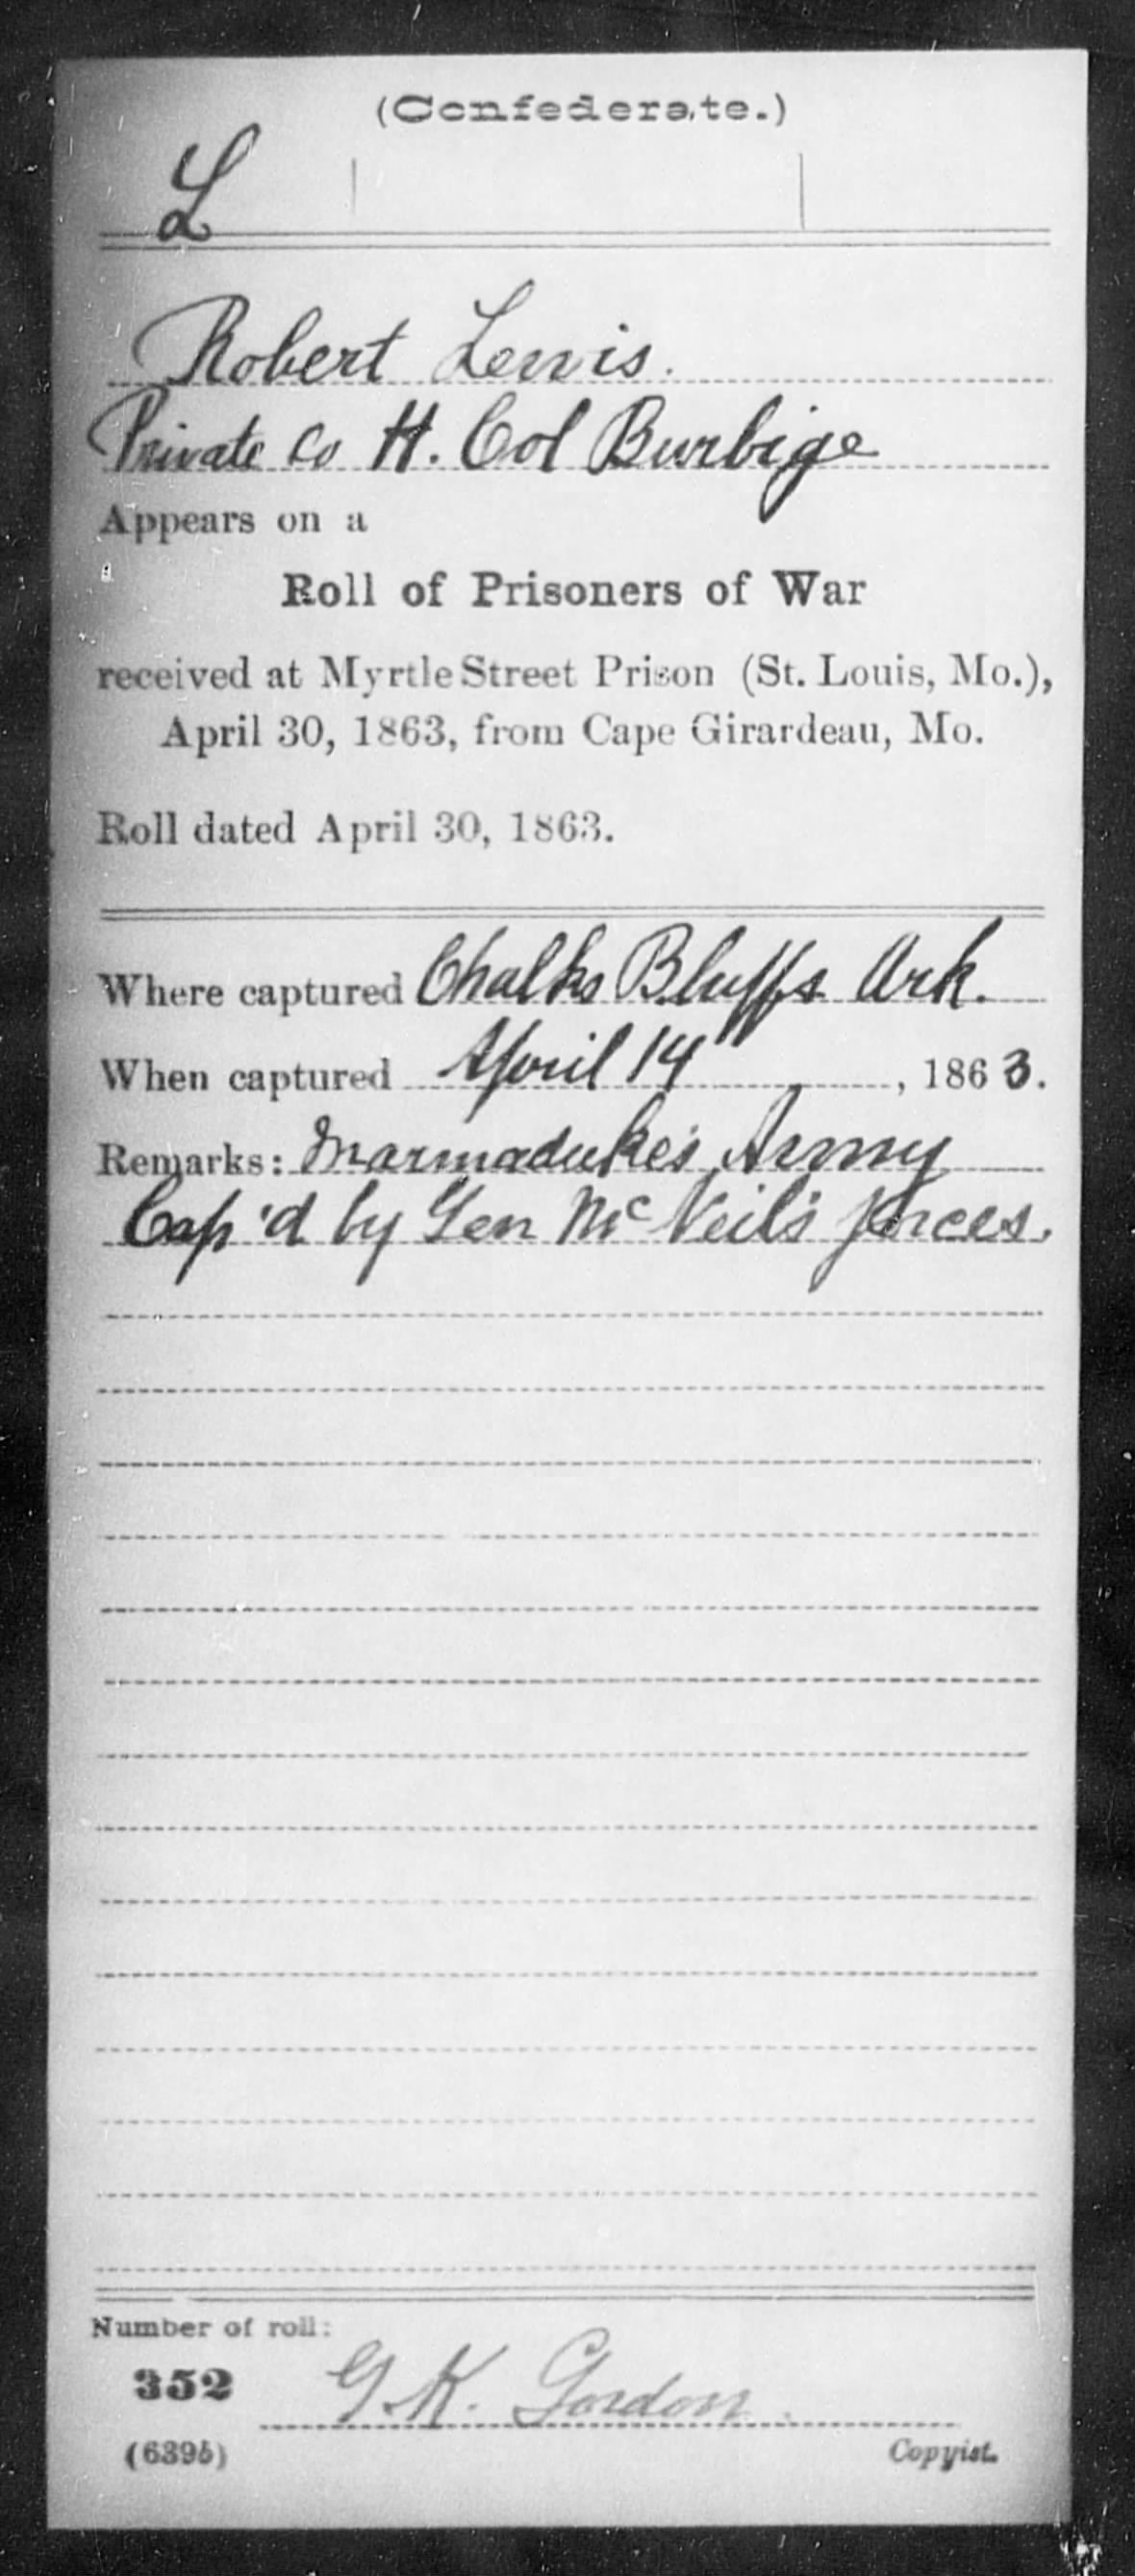 (Confederate.)
L
Robert Lewis.
Private Co H. Col Burbige
Appears on a
Roll of Prisoners of War
received at Myrtle Street Prison (St. Louis, Mo.),
April 30, 1863, from Cape Girardeau, Mo.
Roll dated April 30, 1863.
Where captured Chalks Bluffs Ark.
When captured April 14, 1863.
Remarks: Marmaduke's Army
Cap'd by Gen McNeil's forces.
Number of roll:
352 G K. Gordon
(639b) Copyist.